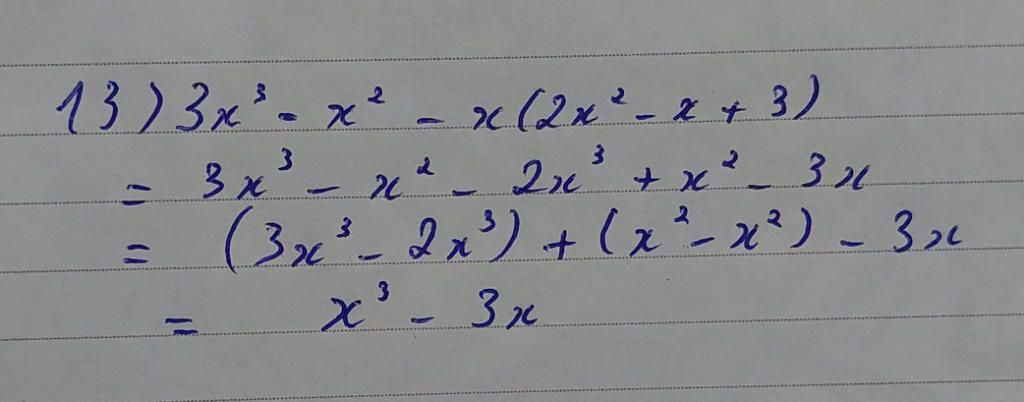 13) 3x³ - x² - x(2x² - x + 3)
= 3x³ - x² - 2x³ + x² - 3x
= (3x³ - 2x³) + (x² - x²) - 3x
= x³ - 3x